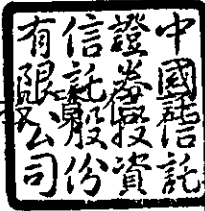 中國信託
證券投資
信託股份
有限公司